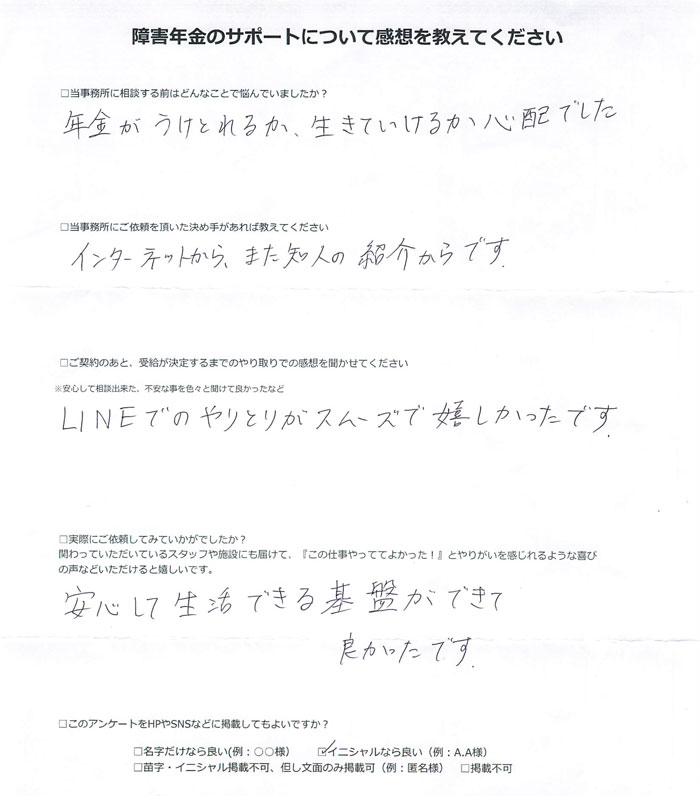 障害年金のサポートについて感想を教えてください
□当事務所に相談する前はどんなことで悩んでいましたか？
年金がうけとれるか、生きていけるか心配でした
□当事務所にご依頼を頂いた決め手があれば教えてください
インターネットから、また知人の紹介からです.
□ご契約のあと、受給が決定するまでのやり取りでの感想を聞かせてください
※安心して相談出来た、不安な事を色々と聞けて良かったなど
LINEでのやりとりがスムーズで嬉しかったです.
□実際にご依頼してみていかがでしたか？
関わっていただいているスタッフや施設にも届けて、『この仕事やっててよかった！』とやりがいを感じれるような喜び
の声などいただけると嬉しいです。
安心して生活できる基盤ができて
良かったです.
□このアンケートをHPやSNSなどに掲載してもよいですか？
□名字だけなら良い(例：○○様）　☑イニシャルなら良い（例：A.A様）
□苗字・イニシャル掲載不可、但し文面のみ掲載可（例：匿名様）　□掲載不可